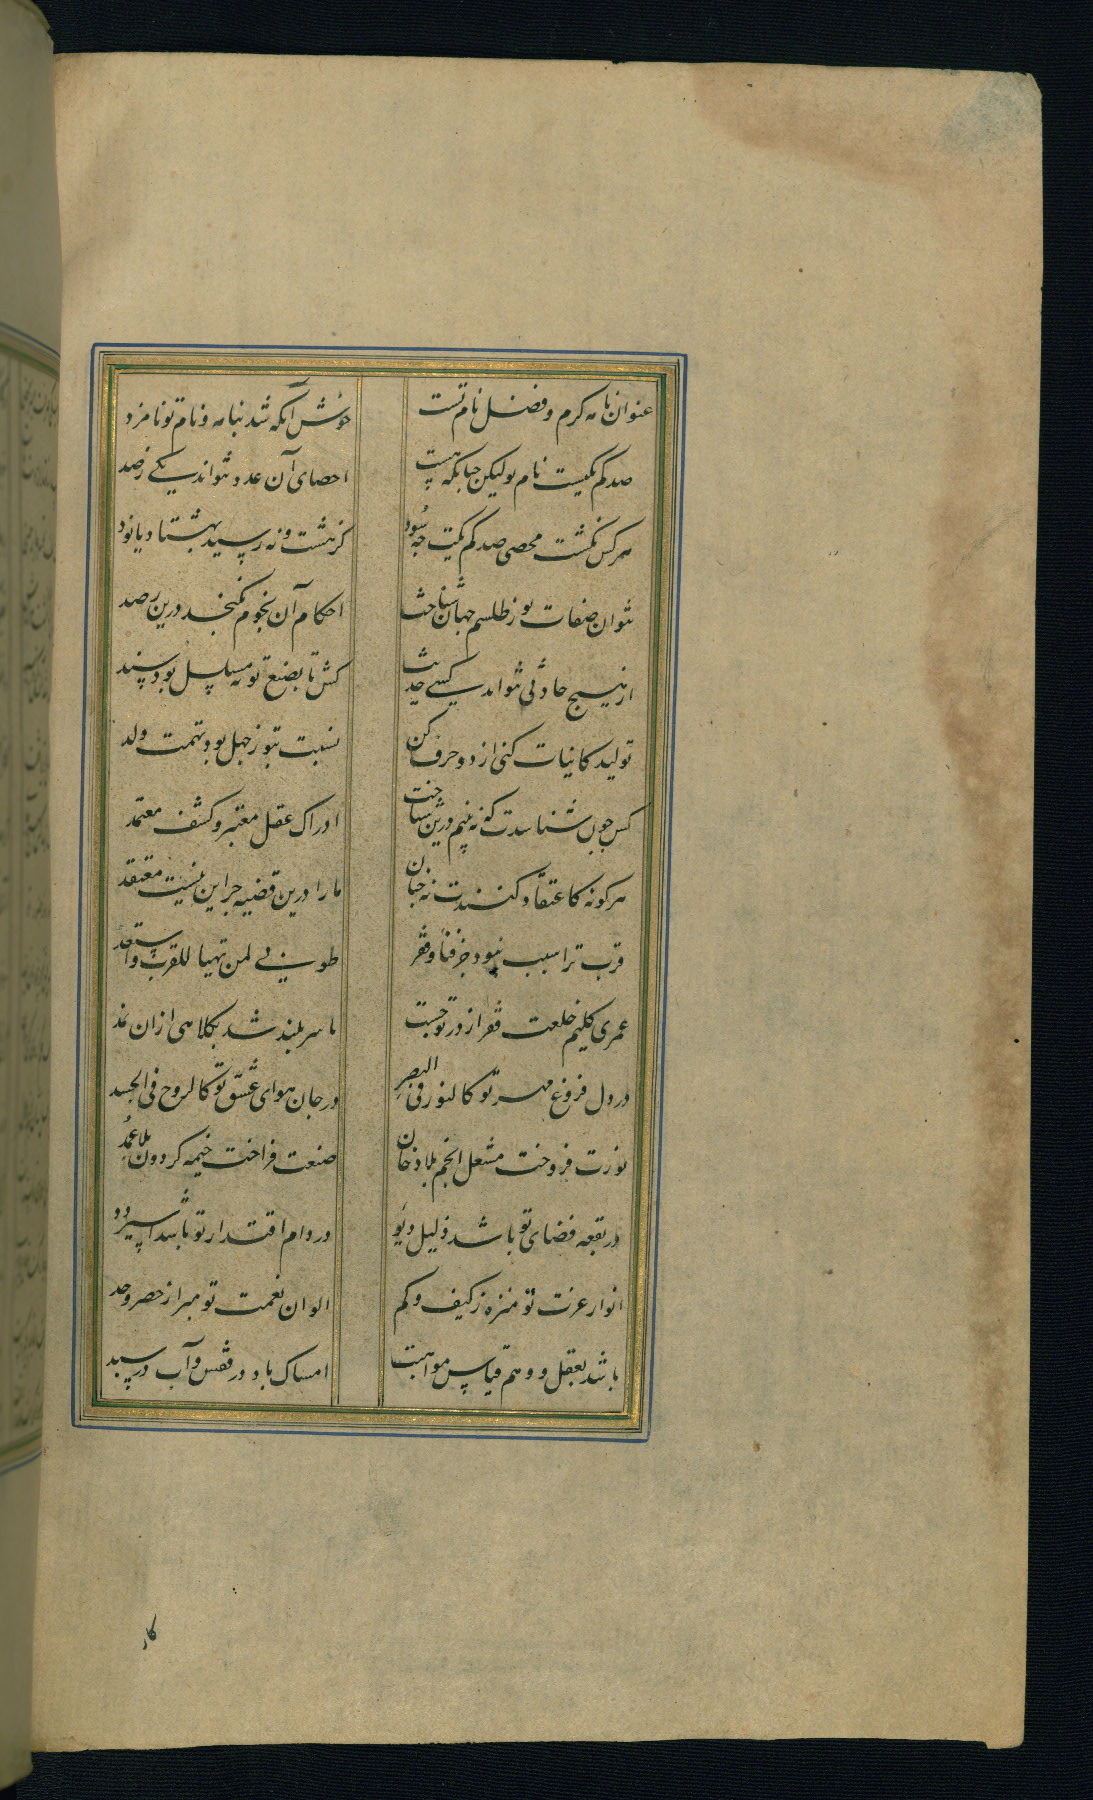 عنوان نامه کرم و فضل نام تست خوش آنکه شد بنامه و نام تو نامزد
صد کم یکیست نام تو لیکن چنانکه هست احصای آن عدد نتواند یکی ز صد
هر کس نگشت محصی صد کم یکیت چه سود کز هشت و نه رسید بهشتاد یا نود
نتوان صفات تو ز طلسم جهان شناخت احکام آن نجوم نگنجد درین رصد
از هیچ حادثی نتواند کسی حدیث کش تا بصنع تو نه مسلسل بود سند
تولید کاینات کنی از دو حرف کن نسبت بتو ز جهل بود تهمت ولد
کس چون شناسدت که نه بینم درین شناخت ادراک عقل معتبر و کشف معتمد
هر کونه کاعتقاد کنندت نه چنان ما را درین قضیه جز این نیست معتقد
قرب ترا سبب نبود جز فنا و فقر طوبی لمن تهیا للقرب واستعد
عمری کلیم خلعت فقر از در تو جست تا سر بلند شد بکلاهی ازان نمد
در دل فروغ مهر تو کالنور فی البصر در جان هوای عشق تو کالروح فی الجسد
نورت فروخت مشعل انجم بلا دخان صنعت فراخت خیمه کردون بلا عمد
در بقعه فضای تو باشد ذلیل دیو در دام اقتدار تو باشد اسیر دد
انوار عزت تو منزه ز کیف و کم الوان نعمت تو مبرا ز حصر و حد
باشد بعقل و وهم قیاس مواهبت امساک باد در قفس و آب در سبد